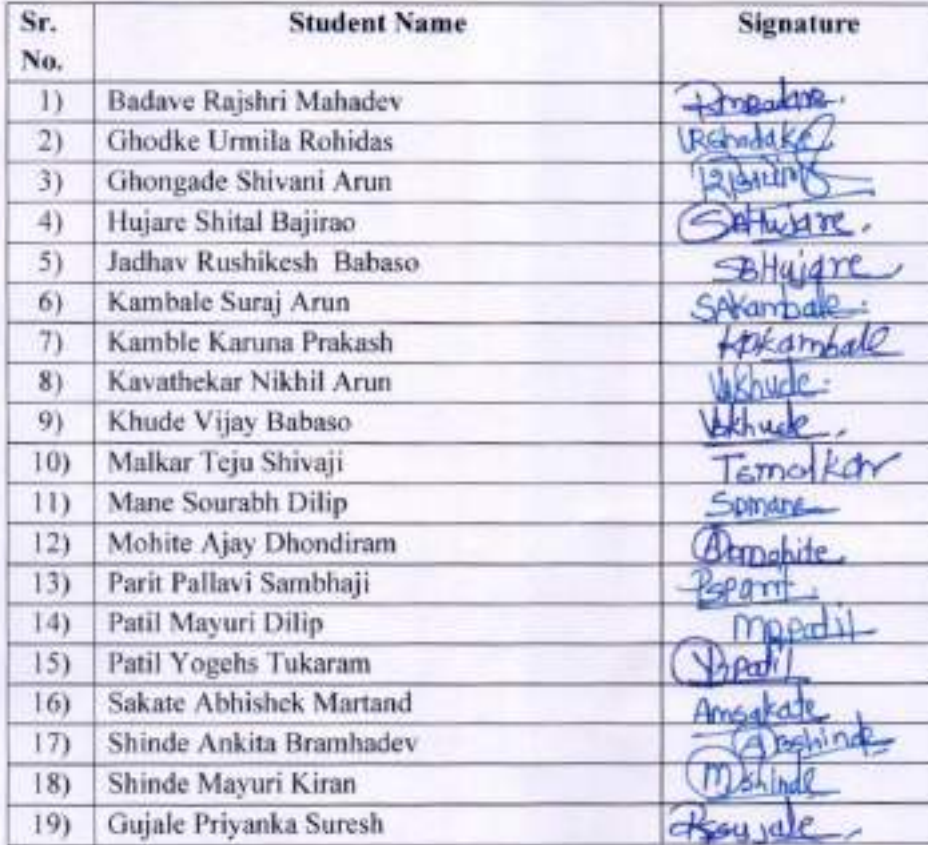 Sr. No. Student Name Signature
1) Badave Rajshri Mahadev
2) Ghodke Urmila Rohidas
3) Ghongade Shivani Arun
4) Hujare Shital Bajirao SAHujare.
5) Jadhav Rushikesh Babaso SBHujare
6) Kambale Suraj Arun SAKambale.
7) Kamble Karuna Prakash KPKambale
8) Kavathekar Nikhil Arun
9) Khude Vijay Babaso VBKhude.
10) Malkar Teju Shivaji Tsmalkar
11) Mane Sourabh Dilip SDmane
12) Mohite Ajay Dhondiram ADmohite
13) Parit Pallavi Sambhaji PSParit.
14) Patil Mayuri Dilip
15) Patil Yogehs Tukaram
16) Sakate Abhishek Martand Amsakate
17) Shinde Ankita Bramhadev ABshinde
18) Shinde Mayuri Kiran
19) Gujale Priyanka Suresh